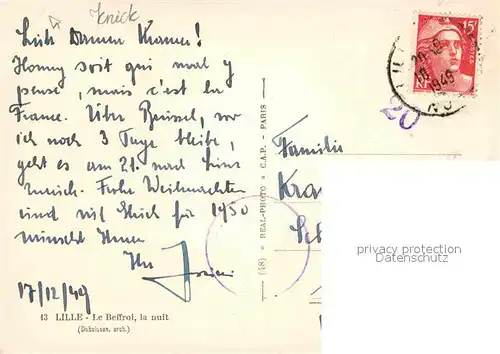 Knick
Kramer!
Honny soit qui mal y
pense, mais c'est la
France. Über Brüssel, wo
ich noch 3 Tage bleibe,
geht es am 21. nach
zurück. Frohe Weihnachten
und viel Glück für 1950
wünscht Ihnen
Ihr
17/12/49
13 LILLE - Le Beffroi, la nuit
(Dubuisson, arch.)
(48) « REAL-PHOTO » C.A.P. - PARIS
15F
POSTES
1949
20
Familie
privacy protection
Datenschutz